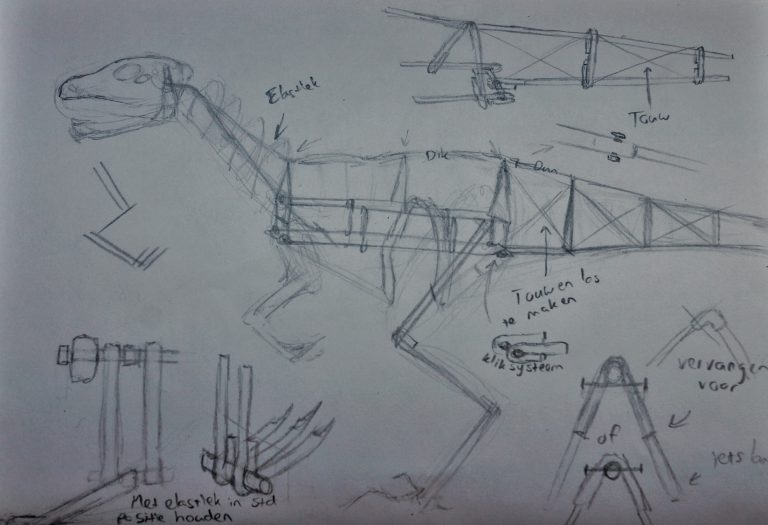 Elastiek
Touw
Dik
Dun
Touwen los
te maken
kliksysteem
vervangen
voor
of
iets
Met elastiek in std
positie houden